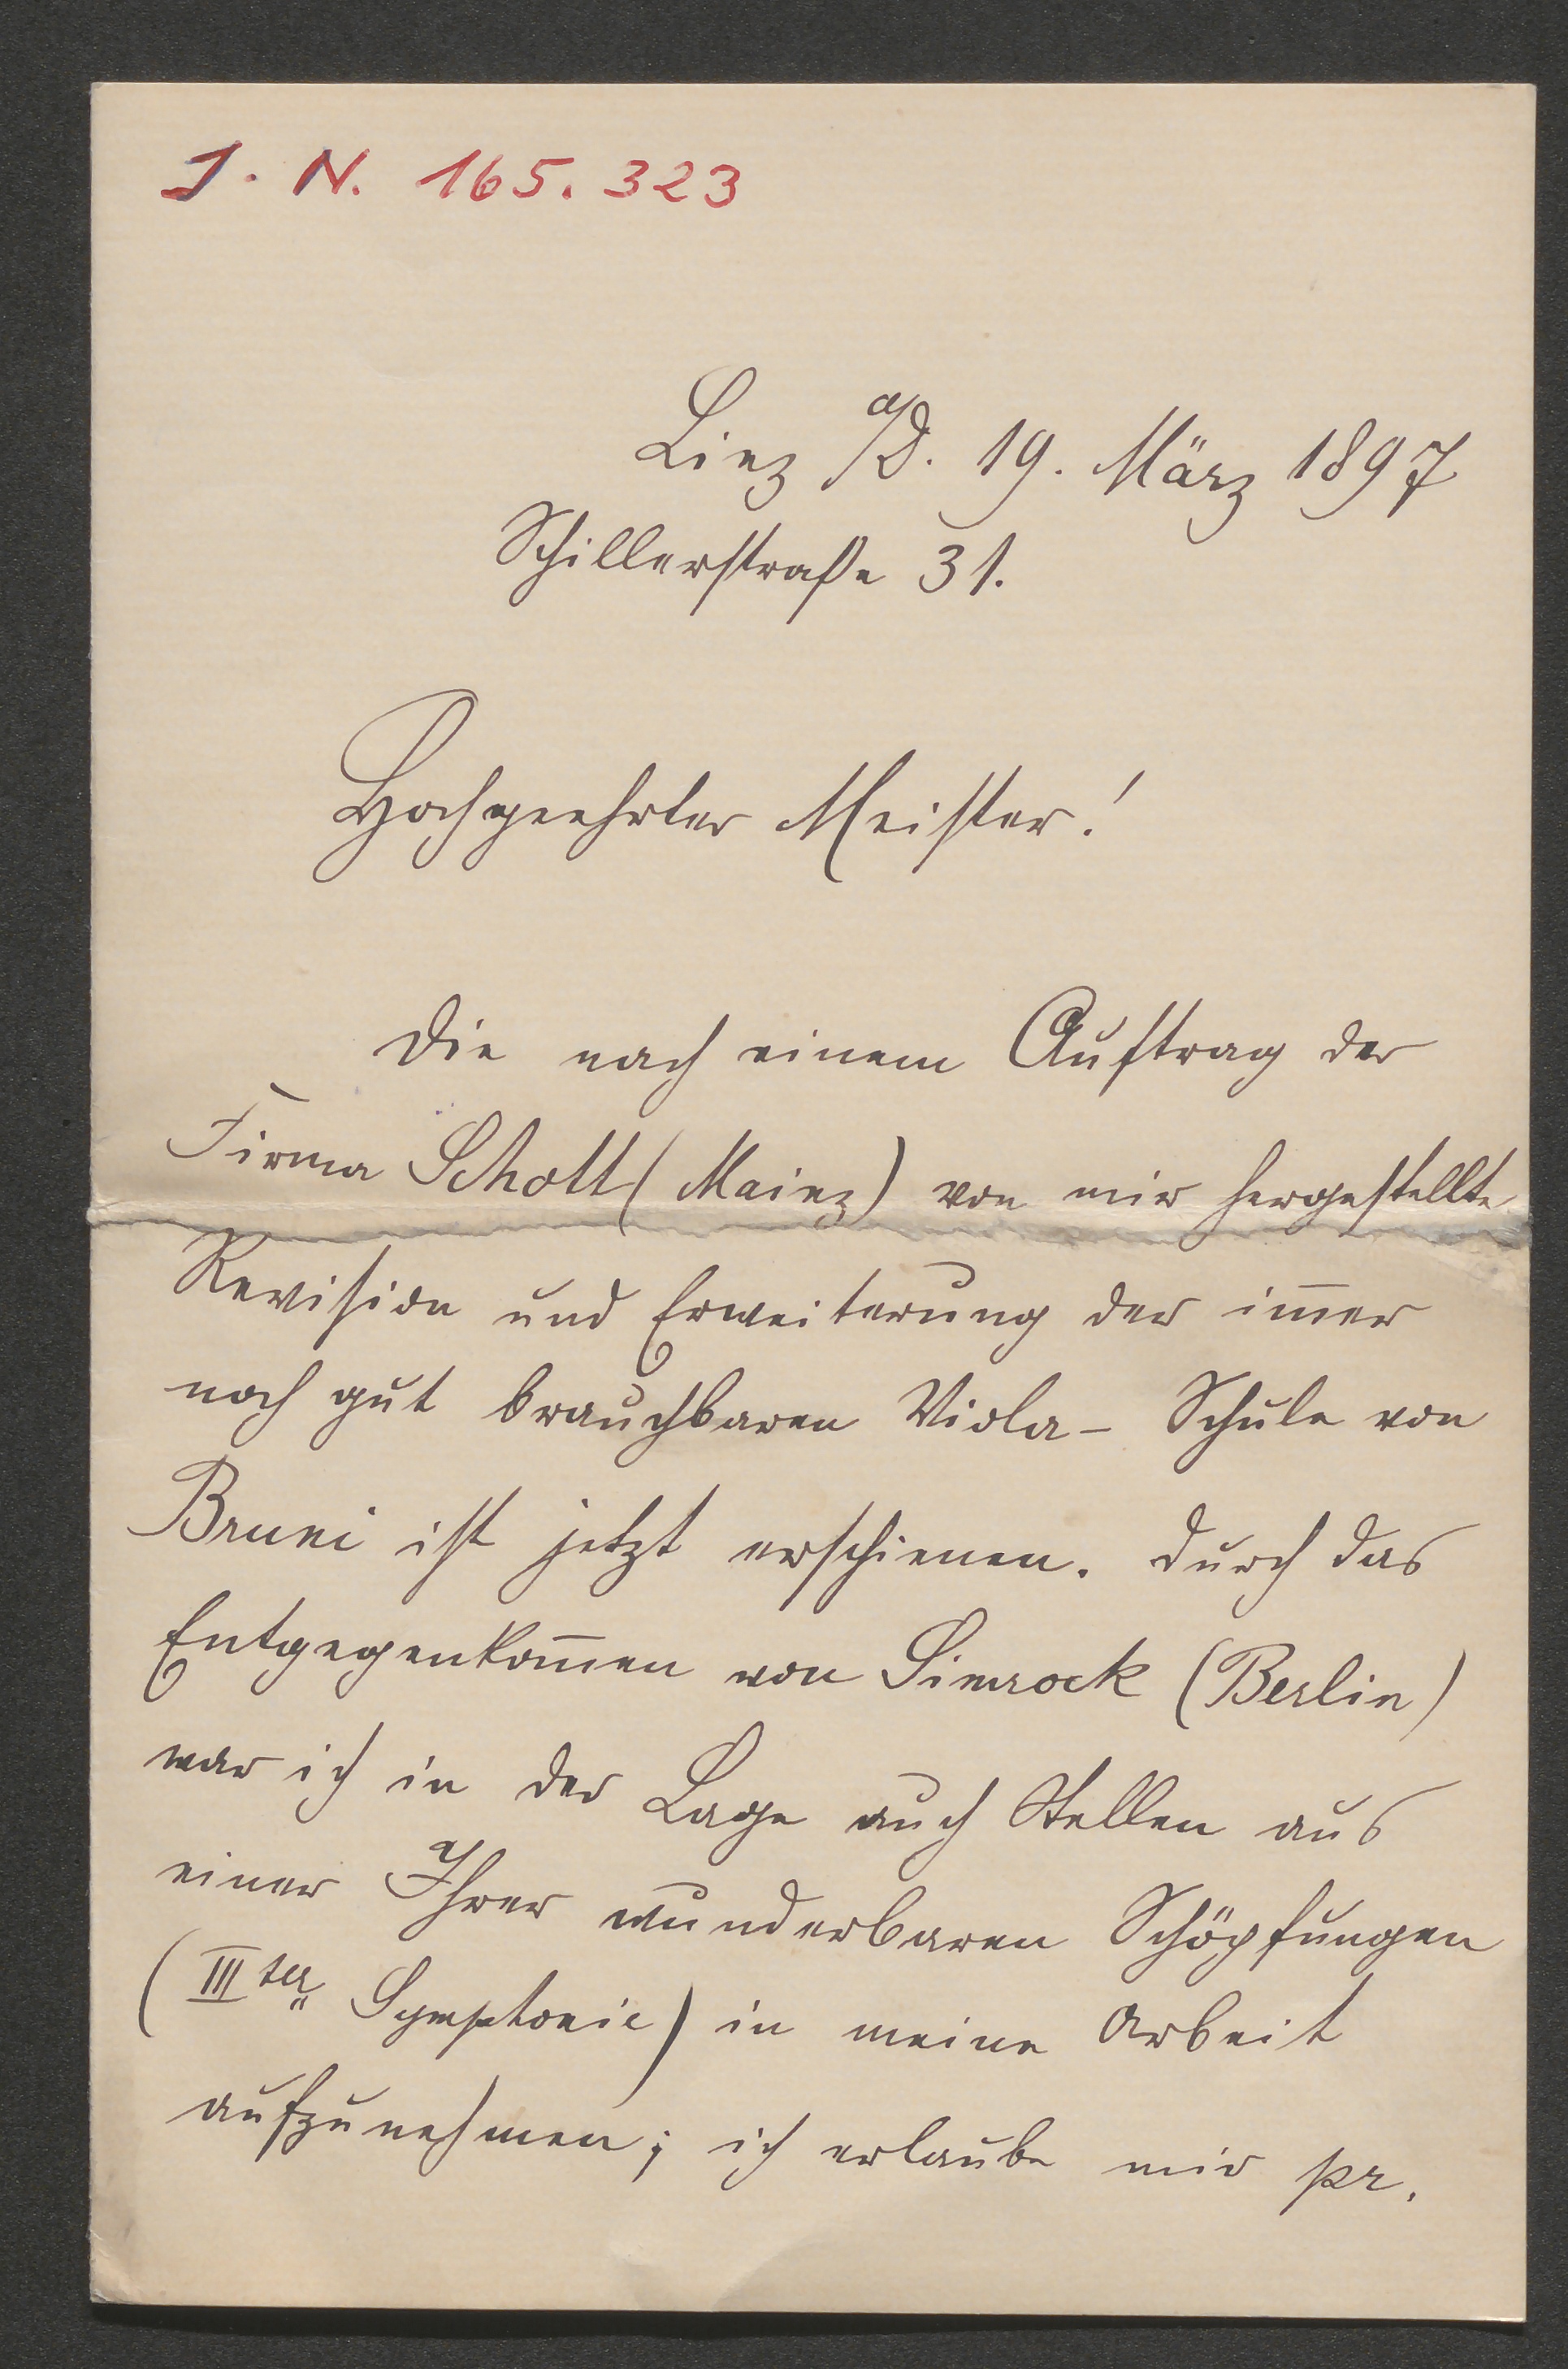 J. N. 165.323
Linz a/D. 19. März 1897
Schillerstraße 31.
Hochgeehrter Meister!
Die nach einem Auftrag der
Firma Schott (Mainz) von mir hergestellte
Revision und Erweiterung der im̅er
noch gut brauchbaren Viola- Schule von
Bruni ist jetzt erschienen. Durch das
Entgegenkom̅en von Simrock (Berlin)
war ich in der Lage auch Stellen aus
einer Ihrer wunderbaren Schöpfungen
(III ter Symphonie) in meine Arbeit
aufzunehmen; ich erlaube mir pr.